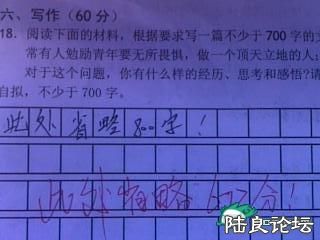 六、写作(60分)
18. 阅读下面的材料,根据要求写一篇不少于700字的文
常有人勉励青年要无所畏惧,做一个顶天立地的人;
对于这个问题,你有什么样的经历、思考和感悟?请
自拟,不少于700字。
此处省略800字!
此处省略 分!
陆良论坛